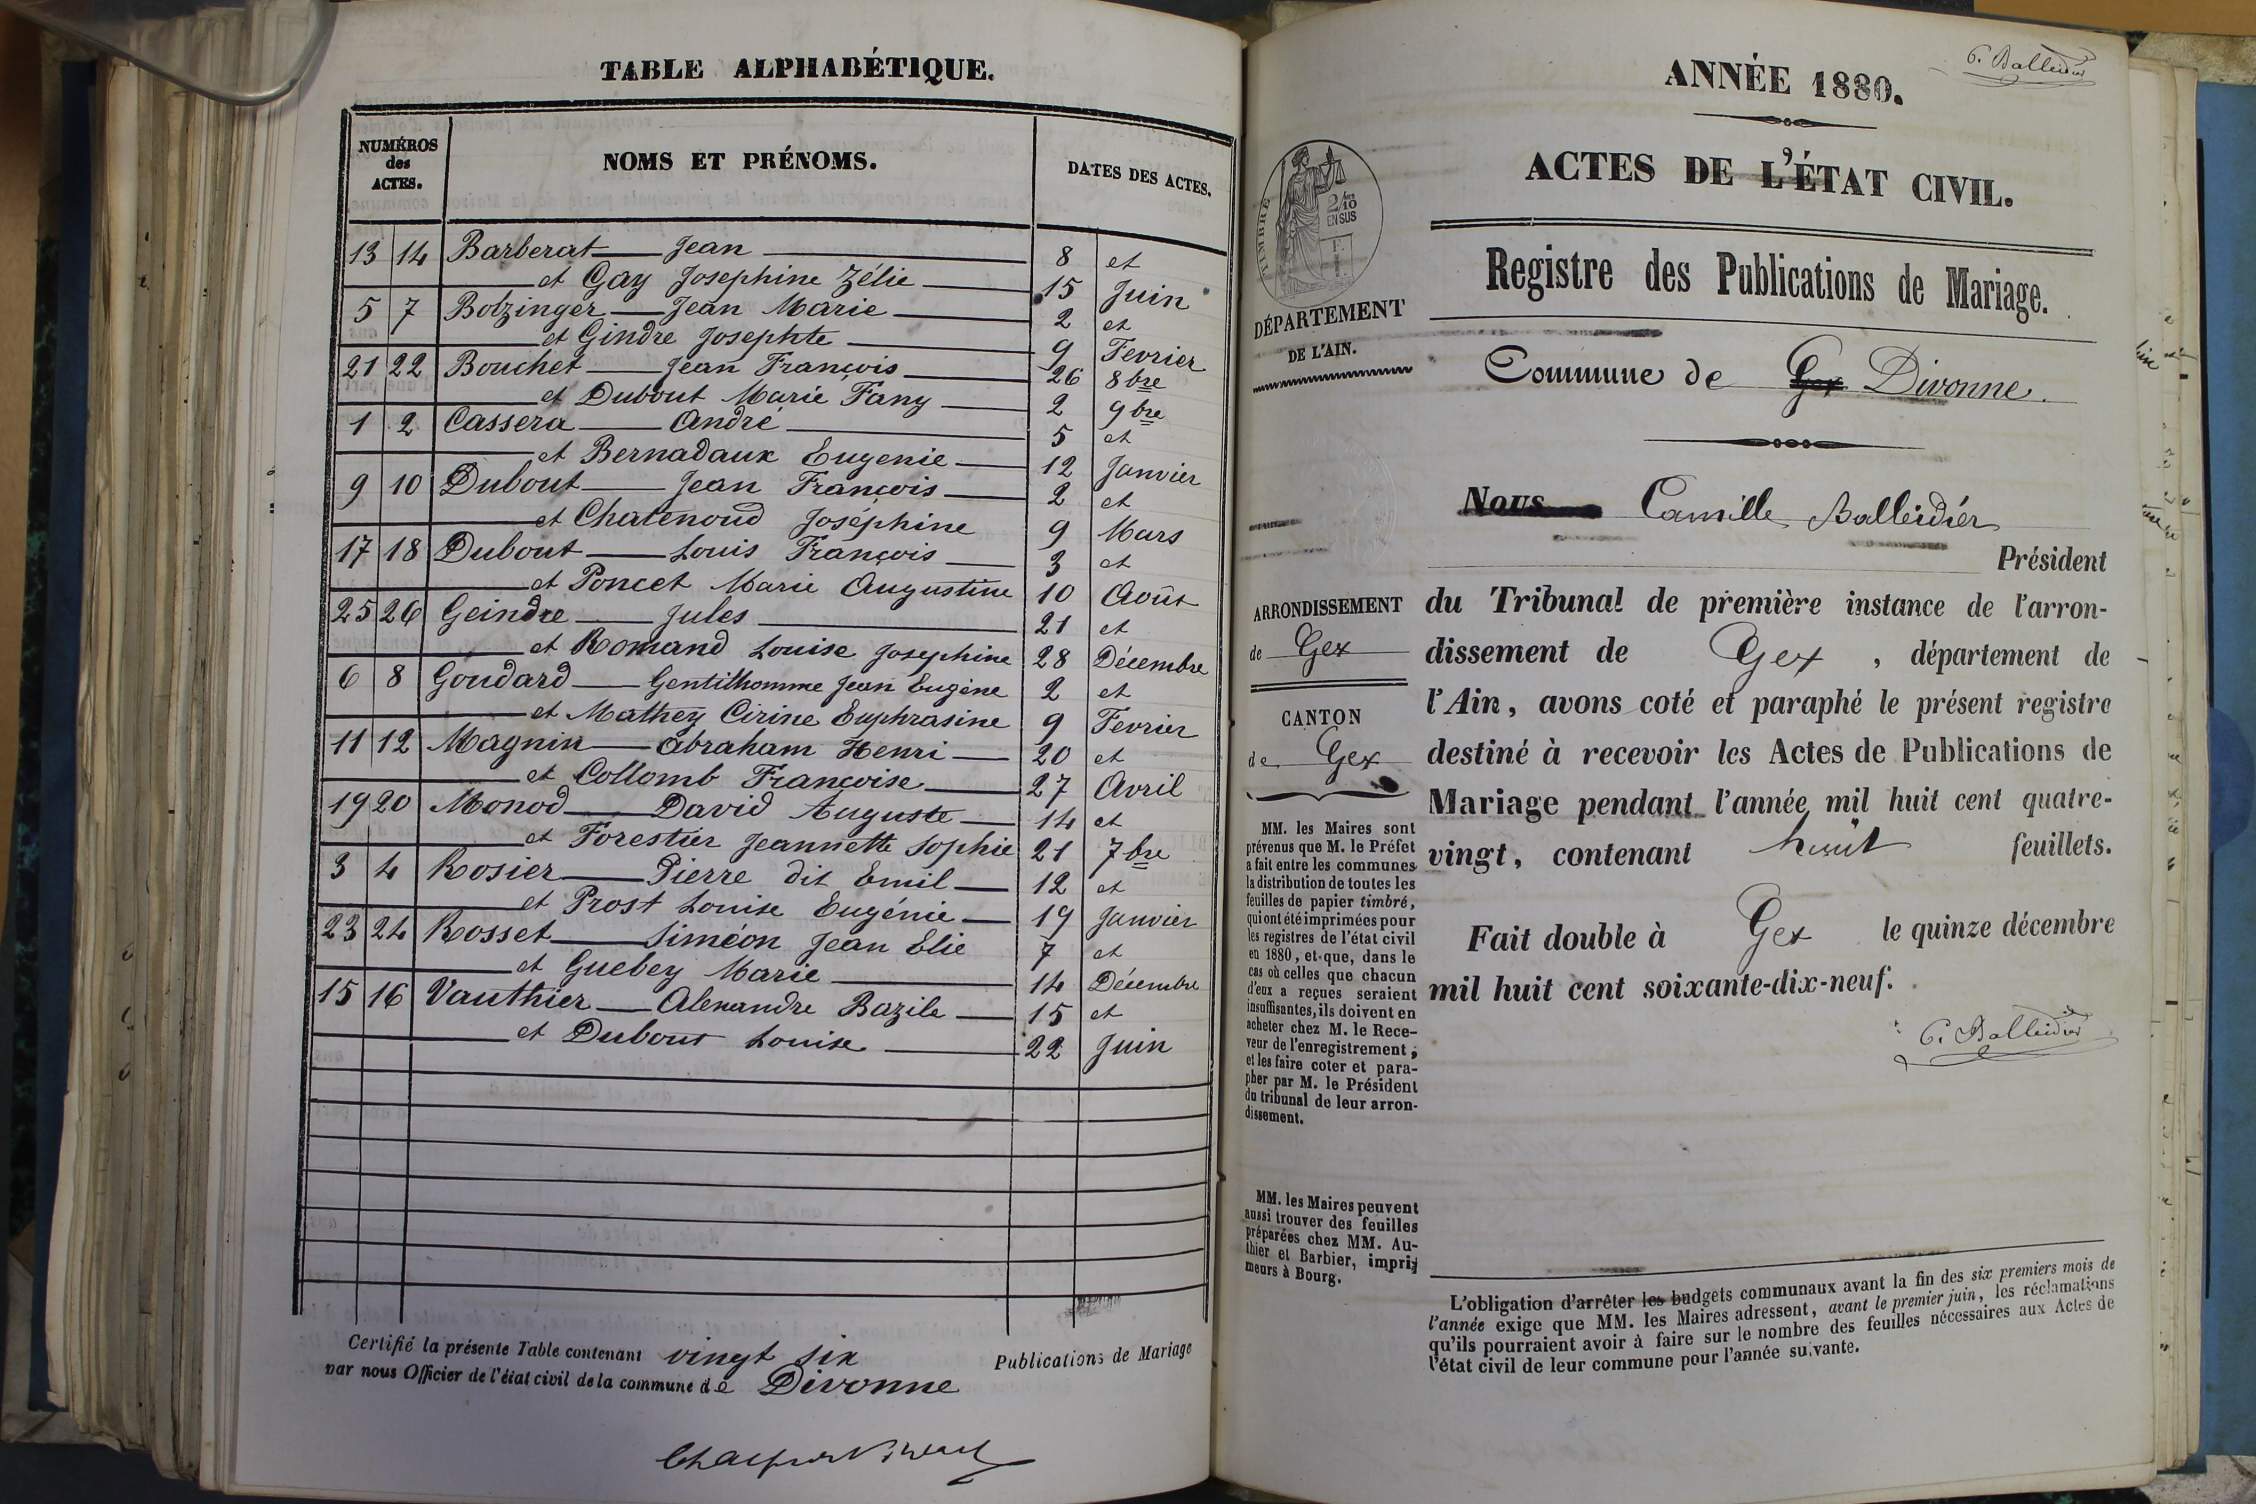 TABLE ALPHABÉTIQUE.
NUMÉROS des ACTES.
NOMS ET PRÉNOMS.
DATES DES ACTES.
13 14 Barberat Jean 8 et
et Gay Josephine Zélie 15 Juin
5 7 Botzinger Jean Marie 2 et
et Gindre Josephte 9 Fevrier
21 22 Bouchet Jean François 26 8bre
et Dubout Marie Fany 2 9bre
1 2 Cassera André 5 et
et Bernadaux Eugenie 12 Janvier
9 10 Dubout Jean François 2 et
et Chatenoud Joséphine 9 Mars
17 18 Dubout Louis François 3 et
et Poncet Marie Augustine 10 Août
25 26 Geindre Jules 21 et
et Romand Louise Josephine 28 Décembre
6 8 Goudard Gentilhomme Jean Eugène 2 et
et Mathey Cirine Euphrasine 9 Fevrier
11 12 Magnin Abraham Henri 20 et
et Collomb Françoise 27 Avril
19 20 Monod David Auguste 14 et
et Forestier Jeannette Sophie 21 7bre
3 4 Rosier Pierre dit Emil 12 et
et Prost Louise Eugénie 19 Janvier
23 24 Rosset Siméon Jean Elie 7 et
et Guebey Marie 14 Décembre
15 16 Vauthier Alexandre Bazile 15 et
et Dubout Louise 22 Juin
Certifié la présente Table contenant vingt six Publications de Mariage
par nous Officier de l'état civil de la commune de Divonne
C. Balleidier
ANNÉE 1880.
ACTES DE L'ÉTAT CIVIL.
Registre des Publications de Mariage.
Commune de Gex Divonne.
TIMBRE
2/10 EN SUS
DÉPARTEMENT
DE L'AIN.
ARRONDISSEMENT
de Gex
CANTON
de Gex
MM. les Maires sont
prévenus que M. le Préfet
a fait entre les communes
la distribution de toutes les
feuilles de papier timbré,
qui ont été imprimées pour
les registres de l'état civil
en 1880, et que, dans le
cas où celles que chacun
d'eux a reçues seraient
insuffisantes, ils doivent en
acheter chez M. le Rece-
veur de l'enregistrement,
et les faire coter et para-
pher par M. le Président
du tribunal de leur arron-
dissement.
MM. les Maires peuvent
aussi trouver des feuilles
préparées chez MM. Au-
thier et Barbier, impri-
meurs à Bourg.
Nous Camille Balleidier
Président
du Tribunal de première instance de l'arron-
dissement de Gex, département de
l'Ain, avons coté et paraphé le présent registre
destiné à recevoir les Actes de Publications de
Mariage pendant l'année mil huit cent quatre-
vingt, contenant huit feuillets.
Fait double à Gex le quinze décembre
mil huit cent soixante-dix-neuf.
C. Balleidier
L'obligation d'arrêter les budgets communaux avant la fin des six premiers mois de
l'année exige que MM. les Maires adressent, avant le premier juin, les réclamations
qu'ils pourraient avoir à faire sur le nombre des feuilles nécessaires aux Actes de
l'état civil de leur commune pour l'année suivante.